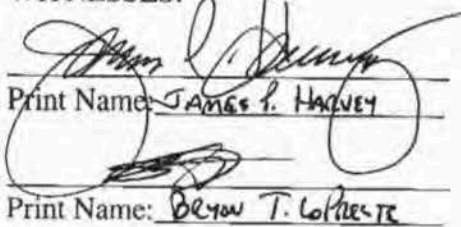 WITNESSES:
Print Name: JAMES P. HARVEY
Print Name: BRYON T. LOPRESTE